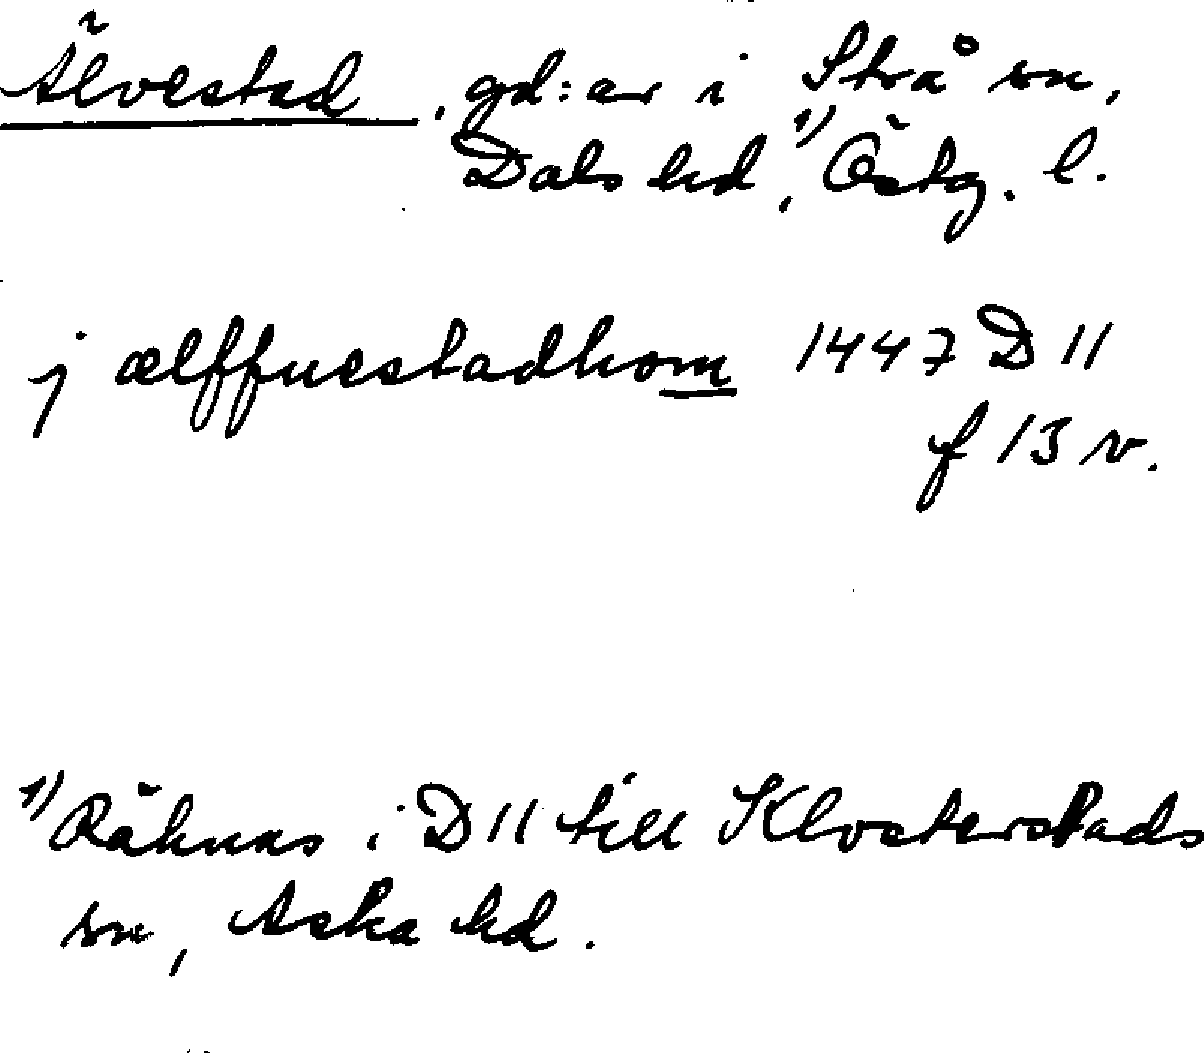 Älvestad, gd:ar i Strå sn,
Dals hd,¹⁾ Östg. l.
j ælffuestadhom 1447 D 11
f 13 v.
¹⁾ Räknas i D 11 till Klosterstads
sn, Aska hd.